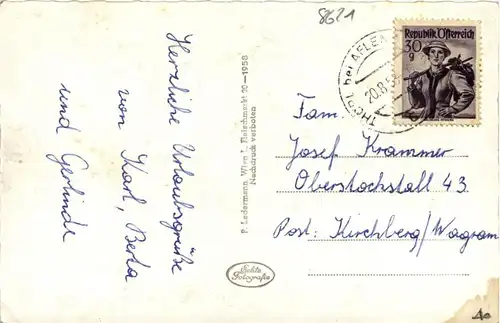 8621
Herzliche Urlaubsgrüße
von Karl, Berta
und Gerlinde
P. Ledermann, Wien I, Fleischmarkt 20 - 1958
Nachdruck verboten
Echte
Fotografie
Republik Österreich
30
g
THÖRL bei AFLEN
20.8.5
Fam.
Josef Krammer
Oberstockstall 43
Post: Kirchberg/Wagram